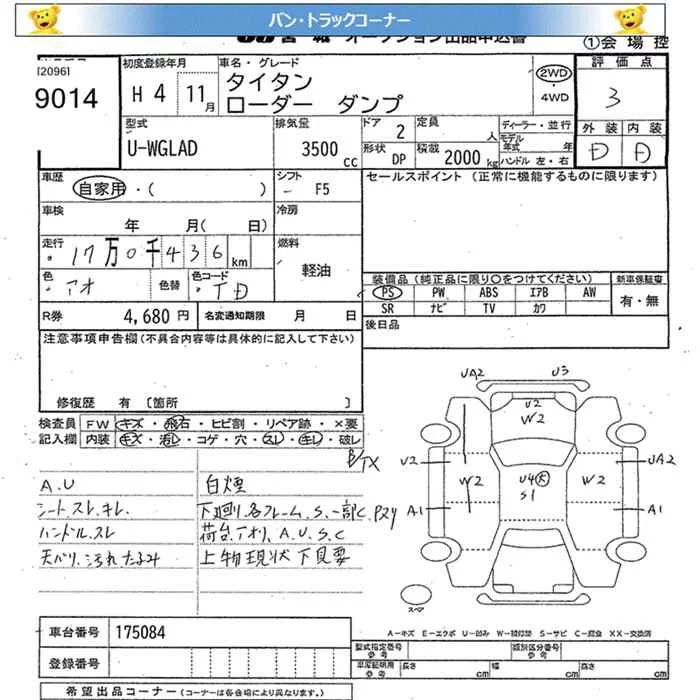 バン・トラックコーナー
オークション出品申込書
①会 場 控
[2096]
9014
初度登録年月
H 4 11月
車名・グレード
タイタン
ローダー ダンプ
2WD
・
4WD
評 価 点
3
外 装 内 装
D D
型式
U-WGLAD
排気量
3500 cc
ドア 2
形状 DP
定員 人
積載 2000 kg
ディーラー・並行
モデル年式 年
ハンドル 左・右
車歴
自家用・( )
シフト
F5
車検
年 月( 日)
冷房
走行
17万0千436km
燃料
軽油
色
アオ
色替
色コード
R券
4,680 円
名変通知期限 月 日
セールスポイント (正常に機能するものに限ります)
装備品(純正品に限り○をつけてください)
新車保証書
PS PW ABS エアB AW
SR ナビ TV カワ
有・無
後日品
注意事項申告欄(不具合内容等は具体的に記入して下さい)
修復歴 有 〔箇所 〕
検査員記入欄
FW キズ・飛石・ヒビ割・リペア跡・×要
内装 キズ・汚れ・コゲ・穴・スレ・キレ・破レ
A.U
シートスレ.キレ.
ハンドルスレ
天バリ.汚れたるみ
白煙
下廻り.各フレーム.S.一部C.Pヌリ
荷台.アオリ.A.U.S.C
上物現状下見要
UA2 U3
U2
W2
U2 W2 U4 大 S1 W2 UA2
A1 A1
スペア
A-キズ E-エクボ U-凹み W-補修跡 S-サビ C-腐食 XX-交換済
車台番号 175084
登録番号
型式指定番号
参考
類別区分番号
参考
車庫証明用
参考
長さ cm 幅 cm 高さ cm
希望出品コーナー (コーナーは各会場により異なります。)